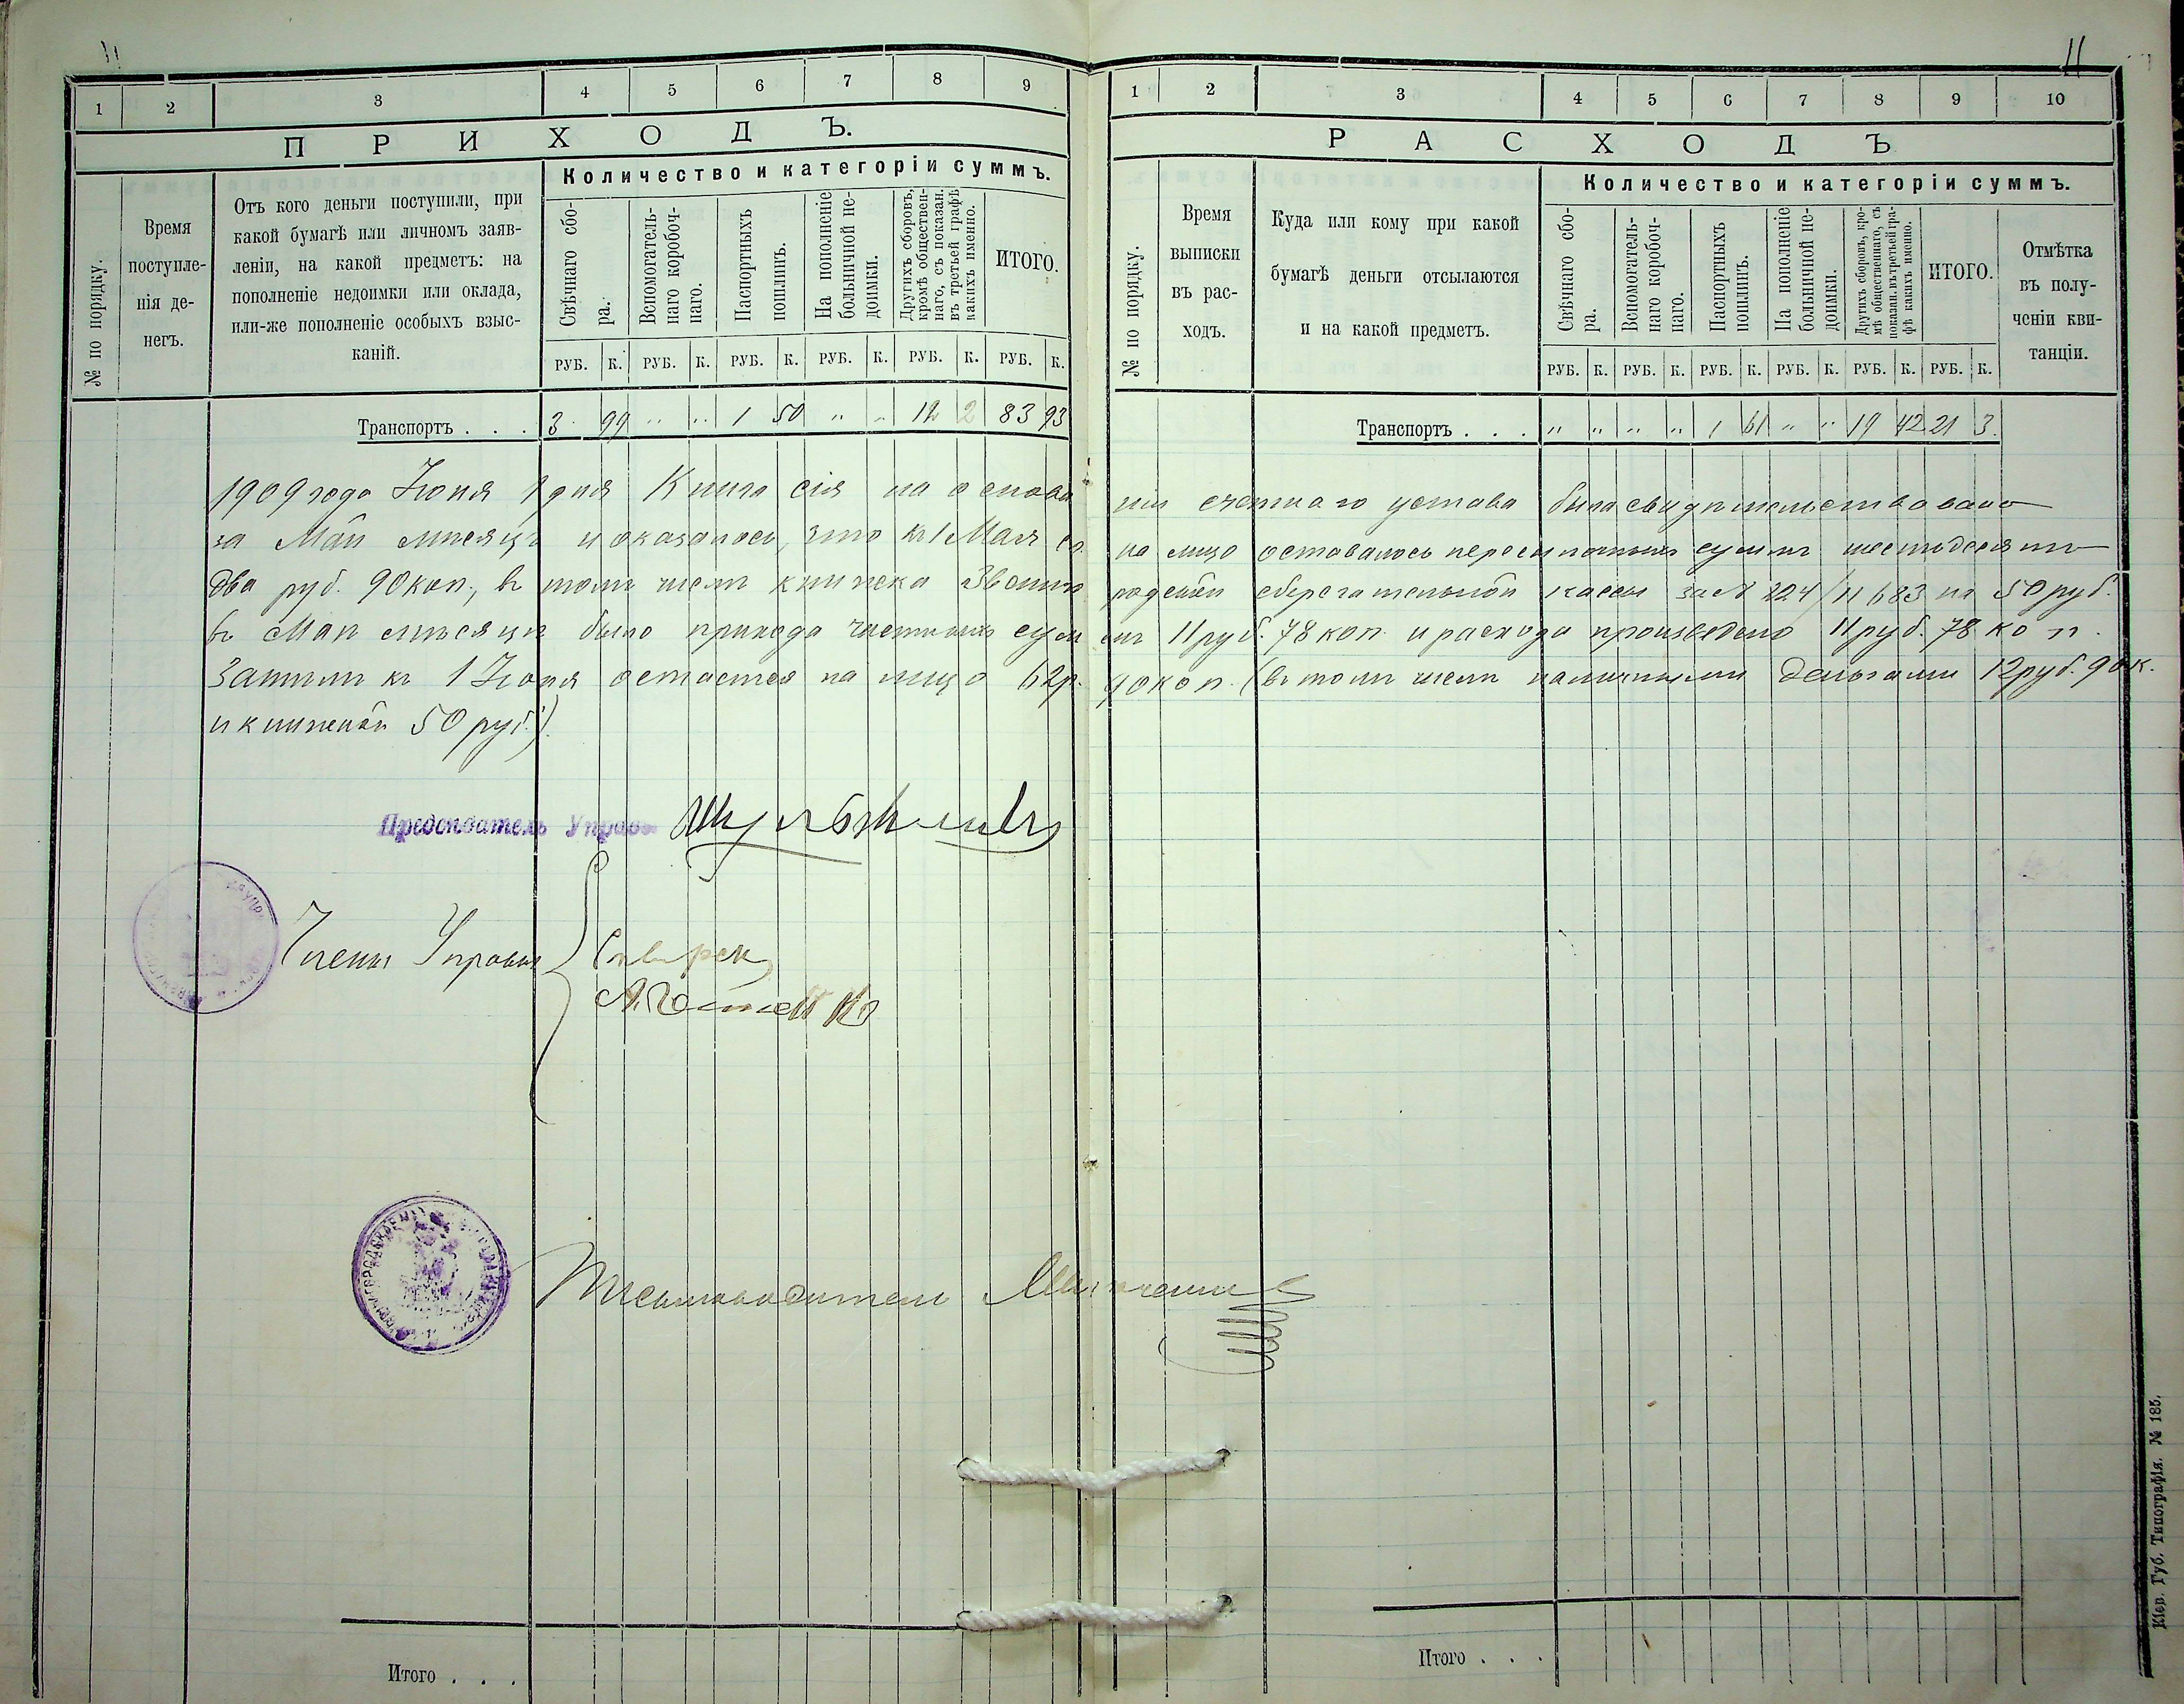 11
1 2 3 4 5 6 7 8 9
ПРИХОДЪ.
№ по порядку.
Время поступле-
нія де-
негъ.
Отъ кого деньги поступили, при
какой бумагѣ или личномъ заяв-
леніи, на какой предметъ: на
пополненіе недоимки или оклада,
или-же пополненіе особыхъ взыс-
каній.
Количество и категоріи суммъ.
Свѣчнаго сбо-
ра.
Вспомогатель-
наго коробоч-
наго.
Паспортныхъ
пошлинъ.
На пополненіе
больничной не-
доимки.
Другихъ сборовъ,
кромѣ обществен-
наго, съ показан.
въ третьей графѣ
какихъ именно.
ИТОГО.
РУБ. К. РУБ. К. РУБ. К. РУБ. К. РУБ. К. РУБ. К.
Транспортъ . . . 3 99 " " 1 50 " " 12 2 83 93
11
1 2 3 4 5 6 7 8 9 10
РАСХОДЪ
№ по порядку.
Время
выписки
въ рас-
ходъ.
Куда или кому при какой
бумагѣ деньги отсылаются
и на какой предметъ.
Количество и категоріи суммъ.
Свѣчнаго сбо-
ра.
Вспомогатель-
наго коробоч-
наго.
Паспортныхъ
пошлинъ.
На пополненіе
больничной не-
доимки.
Другихъ сборовъ, кро-
мѣ общественнаго, съ
показан. въ третьей гра-
фѣ какихъ именно.
ИТОГО.
Отмѣтка
въ полу-
ченіи кви-
танціи.
РУБ. К. РУБ. К. РУБ. К. РУБ. К. РУБ. К. РУБ. К.
Транспортъ . . . " " " " 1 61 " " 19 42 21 3
1909 года Іюня 1 дня Книга сія на основаніи счетнаго устава была свидѣтельствована
за Май мѣсяцъ и оказалось, что къ 1 Мая на лицо оставалось пересыпочныхъ суммъ шестьдесятъ
два руб. 90 коп., въ томъ числѣ книжка сберегательной кассы за № 224/11683 на 50 руб.
въ Маѣ мѣсяцѣ было прихода суммъ 11 руб. 78 коп. и расхода произведено 11 руб. 78 коп.
Затѣмъ къ 1 Іюня остается на лицо 62 р. 90 коп. (въ томъ числѣ наличными деньгами 12 руб. 90 к.
и книжкой 50 руб.).
Предсѣдатель Управы
Члены Управы
Письмоводитель
Итого . . .
Итого . . .
Кіев. Губ. Типографія. № 185.